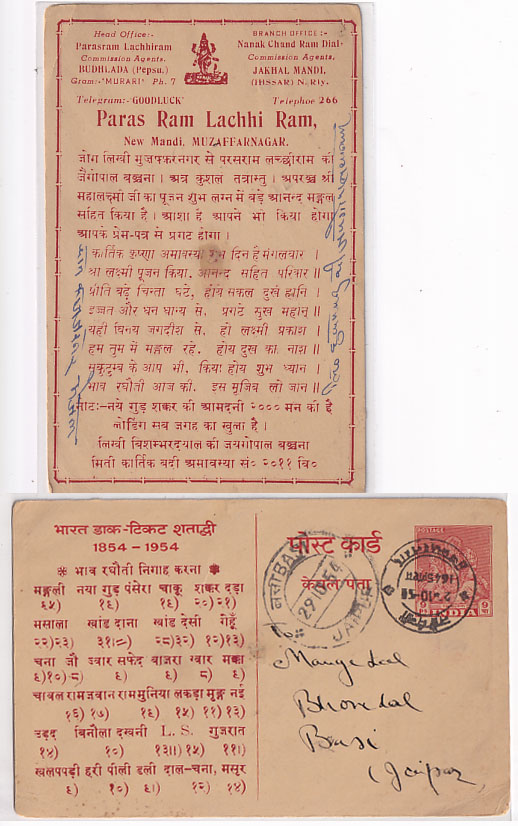 Head Office:-
Parasram Lachhiram
Commission Agents,
BUDHLADA (Pepsu.)
Gram:-'MURARI' Ph. 7
BRANCH OFFICE :-
Nanak Chand Ram Dial-
Commission Agents.
JAKHAL MANDI.
(IHSSAR) N. Rly.
Telegram:-'GOODLUCK'
Telephoe 266
Paras Ram Lachhi Ram,
New Mandi, MUZAFFARNAGAR.
जोग लिखी मुजफ्फरनगर से परसराम लच्छीराम की
जैगोपाल बञ्चना । अत्र कुशल तत्रास्तु । अपरञ्च श्री
महालक्ष्मी जी का पूजन शुभ लग्न में बड़े आनन्द मङ्गल
सहित किया है । आशा है आपने भी किया होगा
आपके प्रेम-पत्र से प्रगट होगा ।
कार्तिक कृष्णा अमावस्या शुभ दिन है मंगलवार ।
श्री लक्ष्मी पूजन किया, आनन्द सहित परिवार ॥
प्रीति बढ़े चिन्ता घटे, होये सकल दुख हानि ।
इज्जत और धन धान्य से, प्रगटे सुख महान् ॥
यही विनय जगदीश से, हो लक्ष्मी प्रकाश ।
हम तुम में मङ्गल रहे, होय दुख का नाश ॥
सकुटम्ब के आप भी, किया होय शुभ ध्यान ।
भाव रघौती आज की, इस मूजिब लो जान ॥
नोटः-नये गुड़ शक्कर की आमदनी २००० मन की है
लोडिंग सब जगह का खुला है ।
लिखी बिशम्भरदयाल की जयगोपाल बञ्चना
मिती कार्तिक बदी अमावस्या सं० २०११ वि०
भारत डाक-टिकट शताब्दी
1854 - 1954
❋ भाव रघौती निगाह करना ❋
मङ्गली नया गुड़ पंसेरा चाकू शक्कर दड़ा
१६) १६) २०) २१)
मसाला खांड दाना खांड देसी गेहूँ
२२) २३) ३१॥= २८) ३२) १२) १३)
चना जौ ज्वार सफेद बाजरा ग्वार मक्का
१०) ८) ८)
चावल रामजवान राममुनिया लकड़ा मूङ्ग नई
१६) १७) १६) १५) ११) १३)
उड़द बिनौला दखनी L. S. गुजरात
१४) १०) १३॥) १५) ११।)
खलपपड़ी हरी पीली डली दाल-चना, मसूर
१०) १२) १४)
पोस्ट कार्ड
केवल पता
POSTAGE
INDIA
बसी BASI
29 10 54
JAIPUR
To
Mangelal
Bhorelal
Basi
(Jaipur)